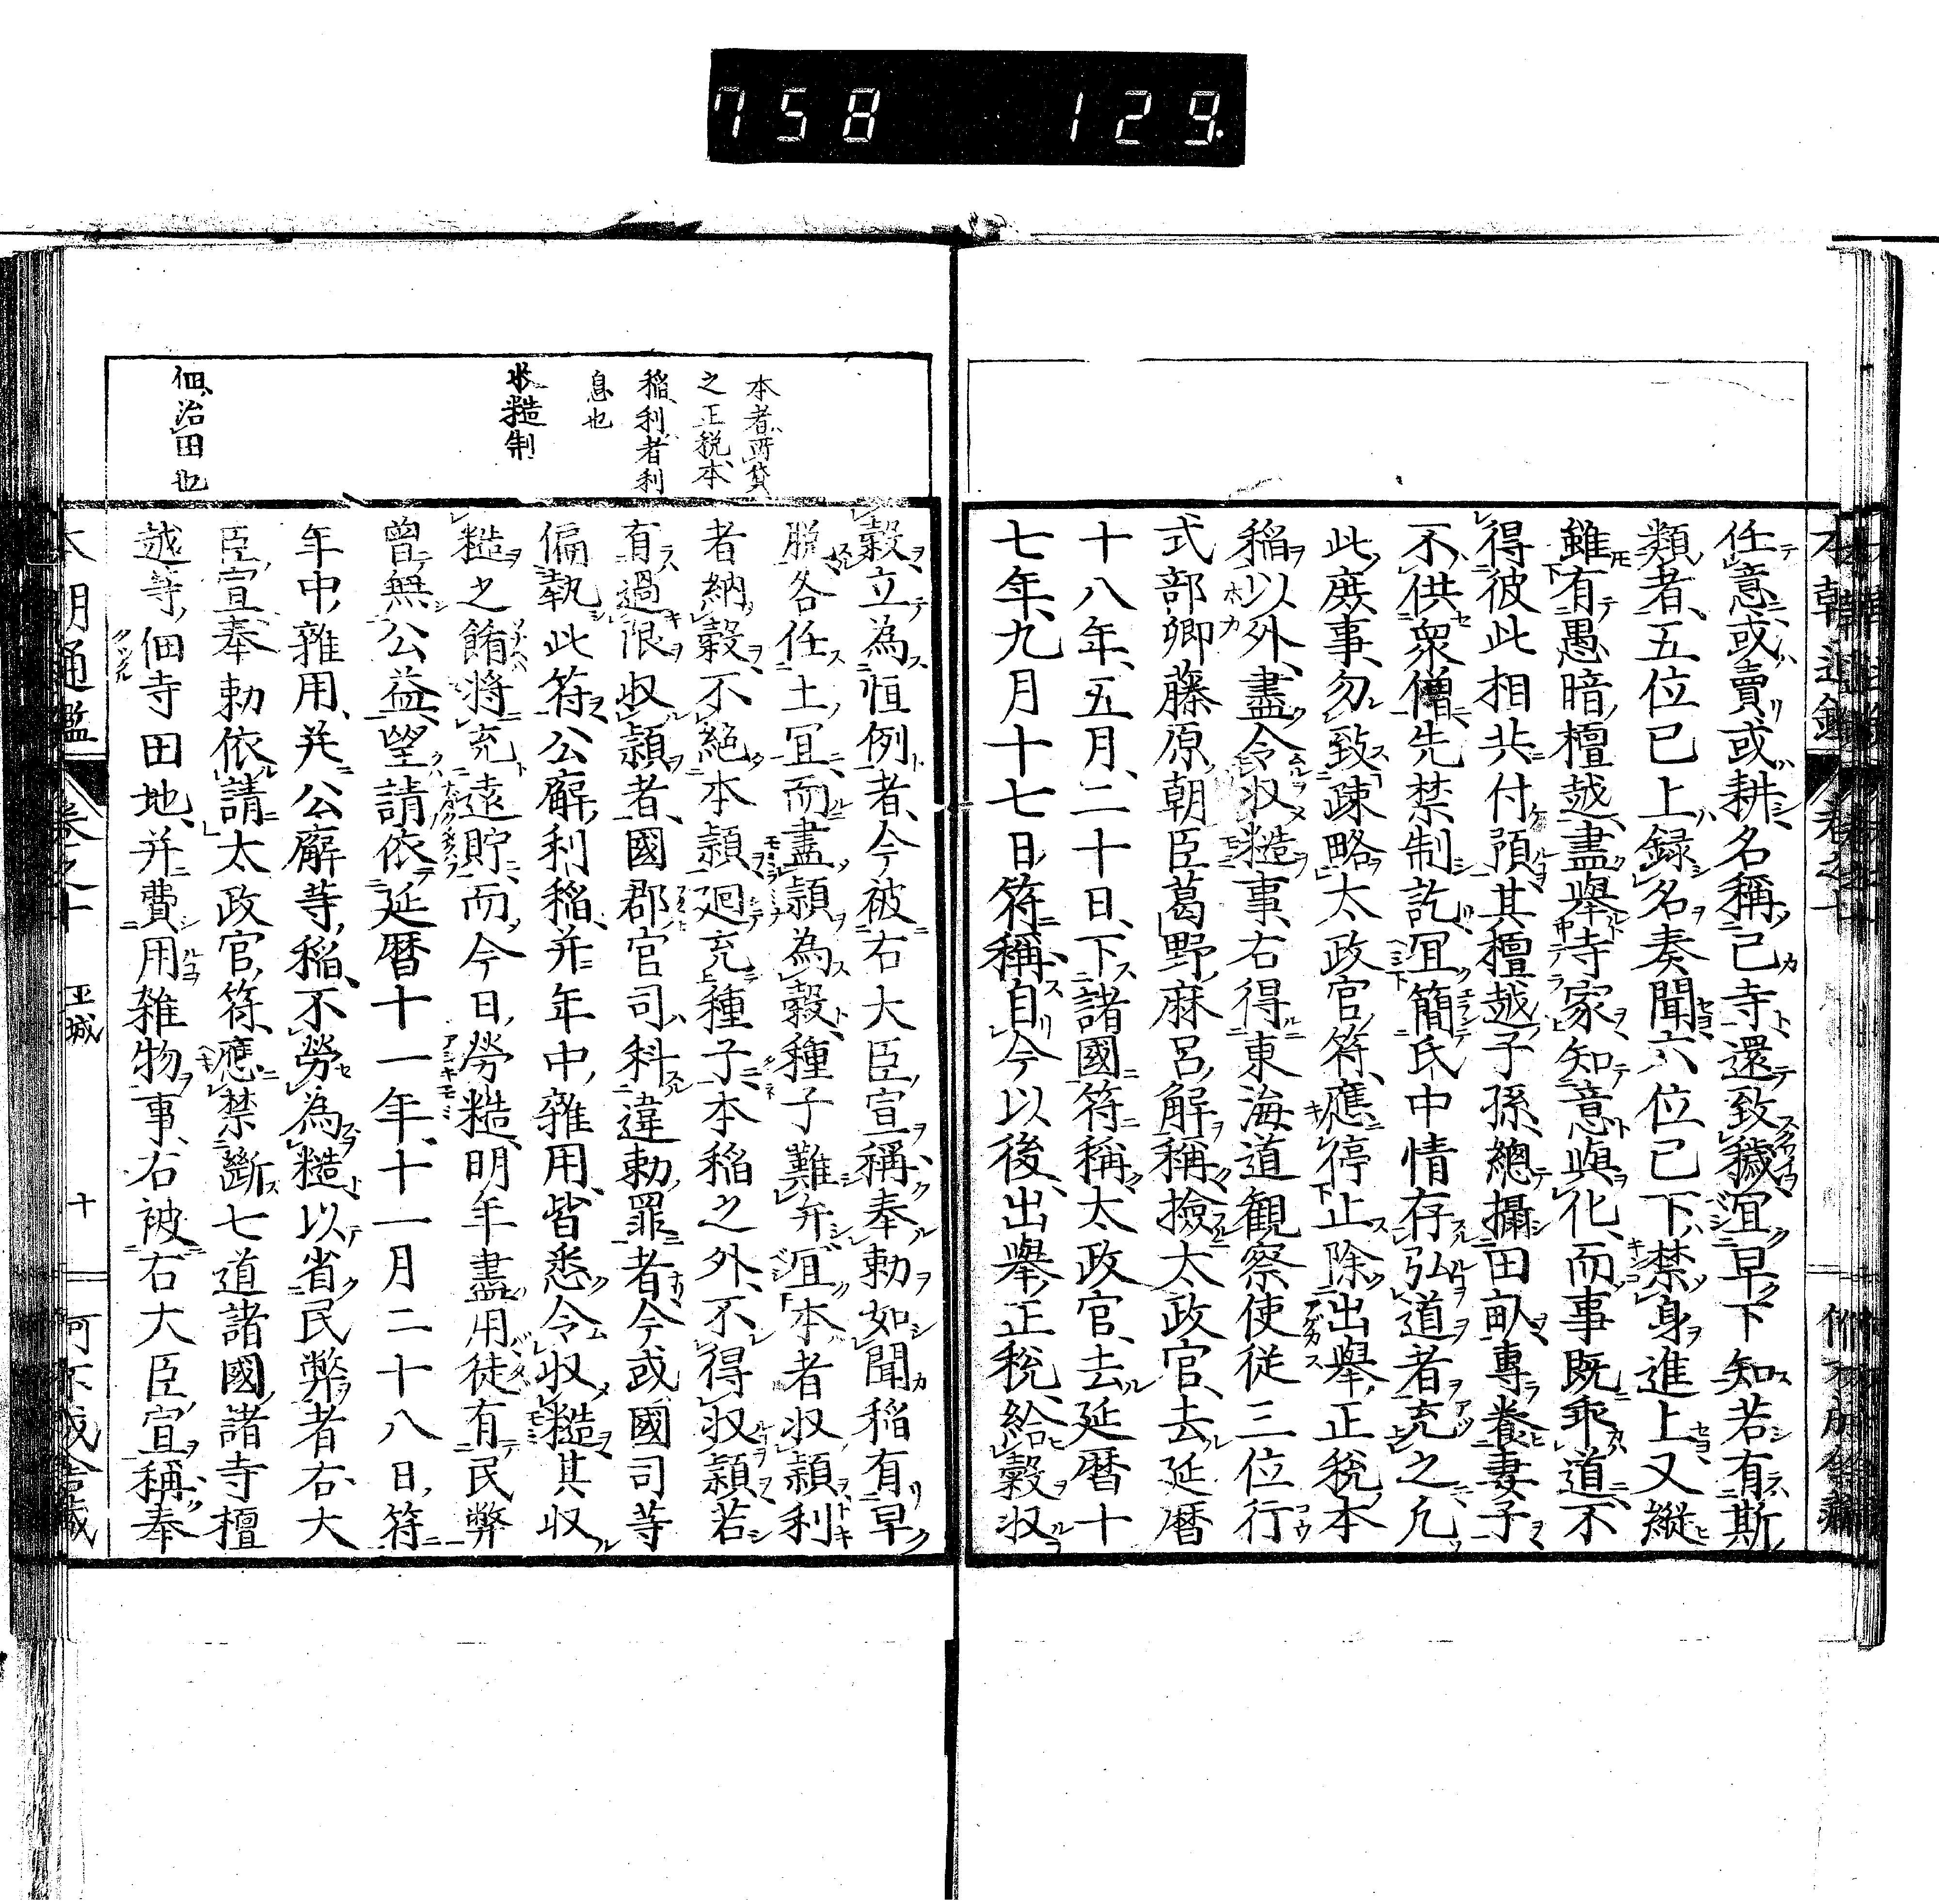 758 129
任意或賣或耕名稱己寺還致穢宜早下知若有斯
類者五位已上録名奏聞六位已下禁身進上又縱
雖有愚暗檀越盡舉寺家知意與化而事既乖道不
得彼此相共付預其檀越子孫總攝田畝專養妻子
不供衆僧先禁制訖宜簡氏中情存弘道者充之凡
此庶事勿致疎略太政官符應停止除出舉正税本
稲以外盡令収糙事右得東海道観察使従三位行
式部卿藤原朝臣葛野麻呂解稱撿太政官去延暦
十八年五月二十日下諸國符稱太政官去延暦十
七年九月十七日符稱自今以後出舉正税給穀収
穀立為恒例者今被右大臣宣稱奉勅如聞稲有早
晩各任土宜而盡頴為穀種子難弁宜本者収頴利
者納穀不絶本頴廻充種子本稲之外不得収頴若
有過限収頴者國郡官司科違勅罪者今或國司等
偏執此符公廨利稲并年中雜用皆悉令収糙其収
糙之餘將充遠貯而今日勞糙明年盡用徒有民弊
曾無公益望請依延暦十一年十一月二十八日符
年中雜用并公廨等稲不勞為糙以省民弊者右大
臣宣奉勅依請太政官符應禁斷七道諸國諸寺檀
越等佃寺田地并費用雑物事右被右大臣宣稱奉
本者所貸
之正税本
稲利者利
息也
収糙制
佃治田也
本朝通鑑 卷之十 十